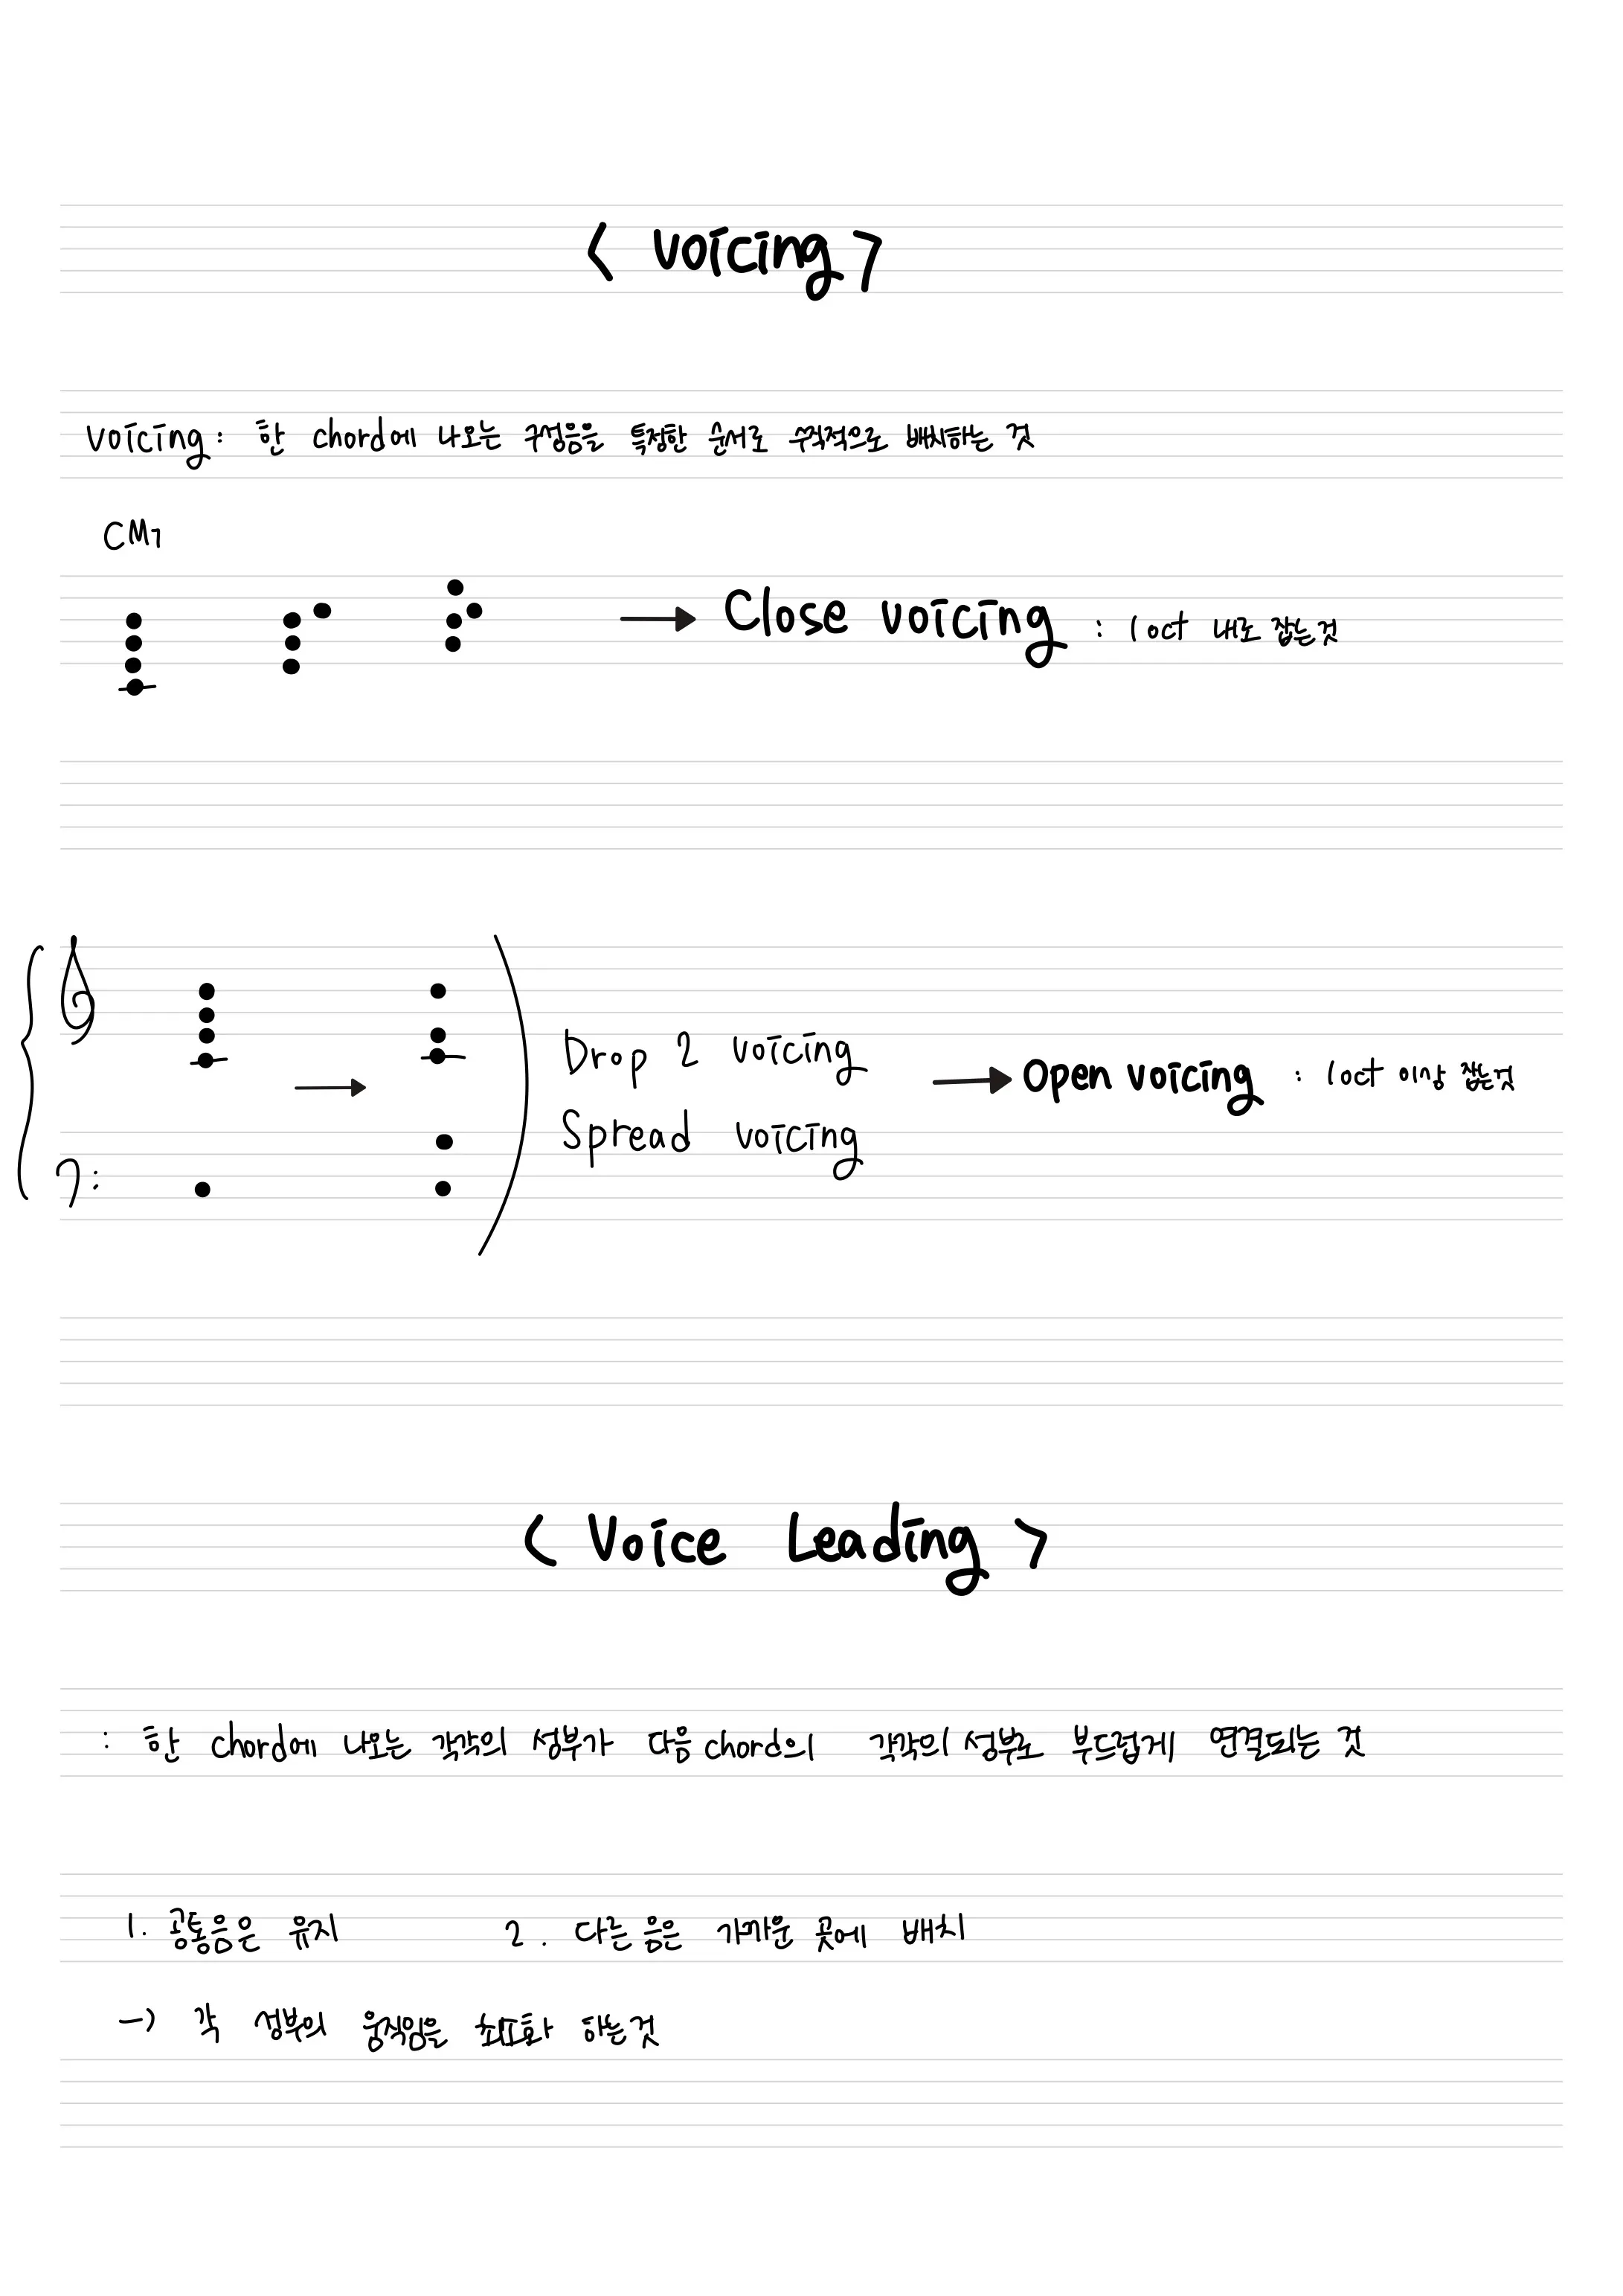 < Voicing >
Voicing : 한 chord에 나오는 구성음을 특정한 순서로 수직적으로 배치하는 것
CM7
→ Close voicing : 1oct 내로 잡는것
Drop 2 voicing
Spread voicing
→ Open voicing : 1oct 이상 잡는것
< Voice Leading >
: 한 chord에 나오는 각각의 성부가 다음 chord의 각각의 성부로 부드럽게 연결되는 것
1. 공통음은 유지 2. 다른 음은 가까운 곳에 배치
→ 각 성부의 움직임은 최소화 하는것